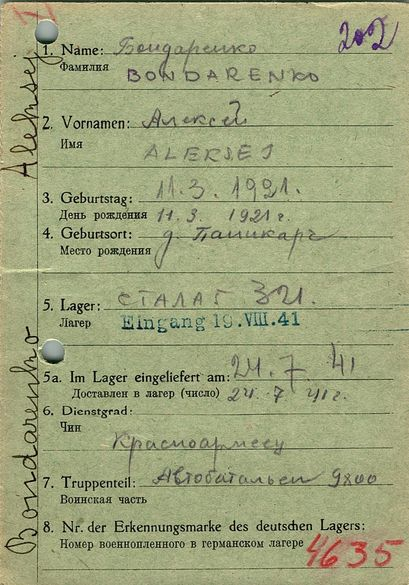 1. Name: Бондаренко
Фамилия BONDARENKO
2. Vornamen: Алексей
Имя
ALEKSEJ
3. Geburtstag: 11.3.1921.
День рождения 11.3. 1921 г.
4. Geburtsort: д.
Место рождения
5. Lager: СТАЛАГ 321.
Лагер Eingang 19.VIII.41
5a. Im Lager eingeliefert am: 24.7 41
Доставлен в лагер (число) 24.7 41г.
6. Dienstgrad:
Чин
Красноармеец
7. Truppenteil: Автобатальен
Воинская часть
8. Nr. der Erkennungsmarke des deutschen Lagers:
Номер военнопленного в германском лагере 4635
Bondarenko Aleksej